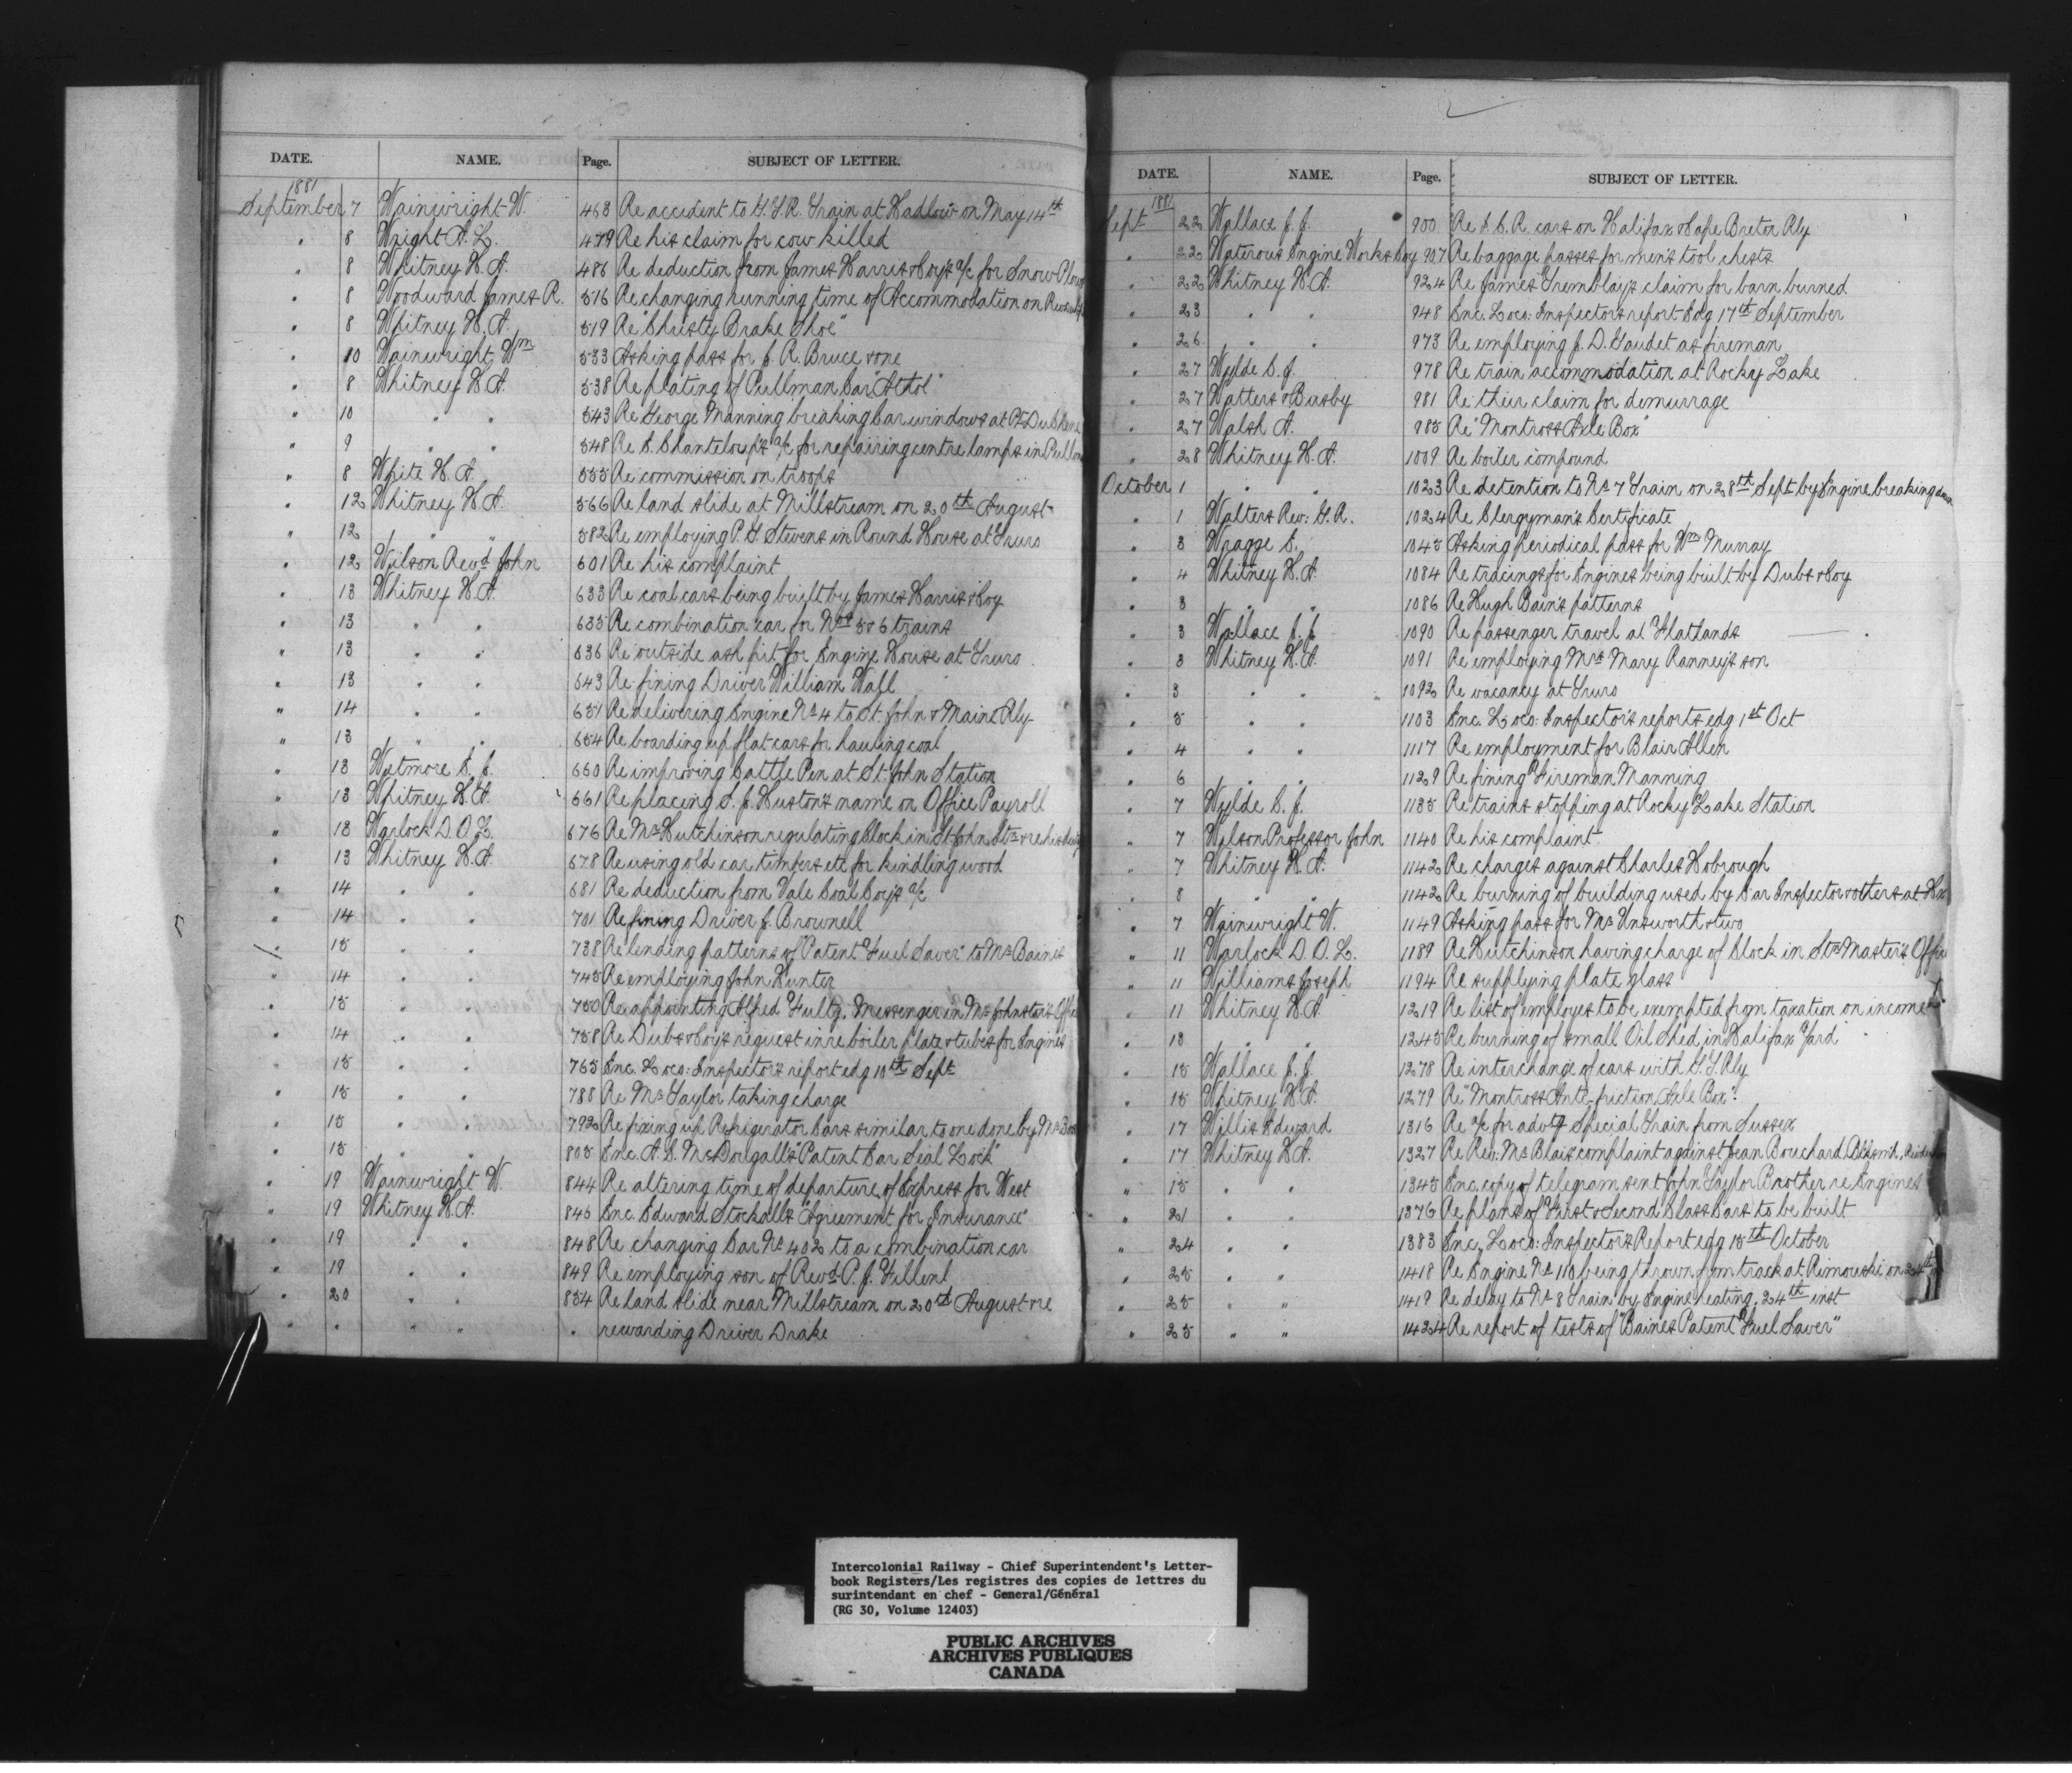 DATE. NAME. Page. SUBJECT OF LETTER.
1881
September 7 Wainwright W. 468 Re accident to G.T.R. Train at Hadlow on May 14th
" 8 Wright A. L. 479 Re his claim for cow killed
" 8 Whitney H. A. 486 Re deduction from James Harris & Coy's a/c for Snow Plow
" 8 Woodward James R. 516 Re changing running time of Accommodation on
" 8 Whitney H. A. 519 Re "Christy Brake Shoe"
" 10 Wainwright Wm 533 Asking pass for J. R. Bruce & one
" 8 Whitney H. A. 538 Re plating of Pullman Car "Athol"
" 10 " " 543 Re George Manning breaking car windows at Pt DuChene
" 9 " " 548 Re C. Chanteloup's a/c for repairing centre lamps in
" 8 White H. A. 555 Re commission on troops
" 12 Whitney H. A. 566 Re land slide at Millstream on 20th August
" 12 " " 582 Re employing P. G. Stevens in Round House at Truro
" 12 Wilson Revd John 601 Re his complaint
" 13 Whitney H. A. 633 Re coal cars being built by James Harris & Coy
" 13 " " 635 Re combination car for Nos 5 & 6 trains
" 13 " " 636 Re outside ash pit for Engine House at Truro
" 13 " " 643 Re fining Driver William Wall
" 14 " " 651 Re delivering Engine No 4 to St. John & Maine Rly
" 13 " " 654 Re boarding up flat cars for hauling coal
" 13 Wetmore C. J. 660 Re improving Cattle Pen at St. John Station
" 13 Whitney H. A. 661 Re placing S. J. Huston's name on Office Payroll
" 13 Warlock D. O. L. 676 Re Mr Hutchinson regulating Clock in St John Stn & re his
" 13 Whitney H. A. 678 Re using old car timbers etc for kindling wood
" 14 " " 681 Re deduction from Vale Coal Coy's a/c
" 14 " " 701 Re fining Driver J. Brownell
" 15 " " 738 Re lending patterns of "Patent Fuel Saver" to Mr Baines
" 14 " " 745 Re employing John Hunter
" 15 " " 750 Re appointing Alfred Fultz, Messenger in Mr Johnston's Office
" 14 " " 758 Re Dubs & Coy's request in re boiler plate & tubes for Engines
" 15 " " 765 Enc. Loco: Inspector's report edg 10th Sept
" 15 " " 788 Re Mr Taylor taking charge
" 15 " " 792 Re fixing up Refrigerator Cars similar to one done by Mr
" 15 " " 805 Enc. A. C. McDougall's "Patent Car Seal Lock"
" 19 Wainwright W. 844 Re altering time of departure of Express for West
" 19 Whitney H. A. 845 Enc. Edward Stockall's "Agreement for Insurance"
" 19 " " 848 Re changing Car No 402 to a combination car
" 19 " " 849 Re employing son of Revd P. J. Filleul
" 20 " " 854 Re land slide near Millstream on 20th August & re
" " " " " rewarding Driver Drake
DATE. NAME. Page. SUBJECT OF LETTER.
1881
Sept 22 Wallace J. J. 900 Re I. C. R. cars on Halifax & Cape Breton Rly
" 22 Waterous Engine Works Coy 907 Re baggage passes for men's tool chests
" 22 Whitney H. A. 924 Re James Tremblay's claim for barn burned
" 23 " " 948 Enc. Loco: Inspector's report Edg 17th September
" 26 " " 973 Re employing J. D. Gaudet as fireman
" 27 Wylde C. J. 978 Re train accommodation at Rocky Lake
" 27 Watters & Busby 981 Re their claim for demurrage
" 27 Walsh A. 985 Re "Montross Axle Box"
" 28 Whitney H. A. 1009 Re boiler compound
October 1 " " 1023 Re detention to No 7 Train on 28th Sept by Engine breaking down
" 1 Walters Rev: G. R. 1024 Re Clergyman's Certificate
" 3 Wragge E. 1045 Asking periodical pass for Wm Murray
" 4 Whitney H. A. 1084 Re tracings for Engines being built by Dubs & Coy
" 3 " " 1086 Re Hugh Bain's patterns
" 3 Wallace J. J. 1090 Re passenger travel at Flatlands
" 3 Whitney H. A. 1091 Re employing Mrs Mary Ranney's son
" 3 " " 1092 Re vacancy at Truro
" 5 " " 1103 Enc. Loco: Inspector's reports edg 1st Oct
" 4 " " 1117 Re employment for Blair Allen
" 6 " " 1129 Re fining Fireman Manning
" 7 Wylde C. J. 1135 Re trains stopping at Rocky Lake Station
" 7 Wilson Professor John 1140 Re his complaint
" 7 Whitney H. A. 1142 Re charges against Charles Hobrough
" 8 " " 1142 Re burning of building used by Car Inspector & others at Hx
" 7 Wainwright W. 1149 Asking pass for Mr Unsworth & two
" 11 Warlock D. O. L. 1189 Re Hutchinson having charge of Clock in Stn Master's Office
" 11 Williams Joseph 1194 Re supplying plate glass
" 11 Whitney H. A. 1219 Re list of employes to be exempted from taxation on income
" 13 " " 1245 Re burning of small Oil Shed in Halifax Yard
" 15 Wallace J. J. 1278 Re interchange of cars with G. T. Rly
" 15 Whitney H. A. 1279 Re "Montross Anti-friction Axle Box".
" 17 Willis Edward 1316 Re a/c for advtg Special Train from Sussex
" 17 Whitney H. A. 1327 Re Rev: Mr Blais' complaint against Jean Bouchard, Blksmth,
" 15 " " 1345 Enc. copy of telegram sent John Taylor Brother re Engines
" 21 " " 1376 Re plans of First & Second Class Cars to be built
" 24 " " 1383 Enc. Loco: Inspector's Report edg 15th October
" 25 " " 1418 Re Engine No 110 being thrown from track at Rimouski on 24th
" 25 " " 1419 Re delay to No 8 Train by Engine heating, 24th inst
" 25 " " 1424 Re report of tests of "Baines Patent Fuel Saver"
Intercolonial Railway - Chief Superintendent's Letter-
book Registers/Les registres des copies de lettres du
surintendant en chef - General/Général
(RG 30, Volume 12403)
PUBLIC ARCHIVES
ARCHIVES PUBLIQUES
CANADA